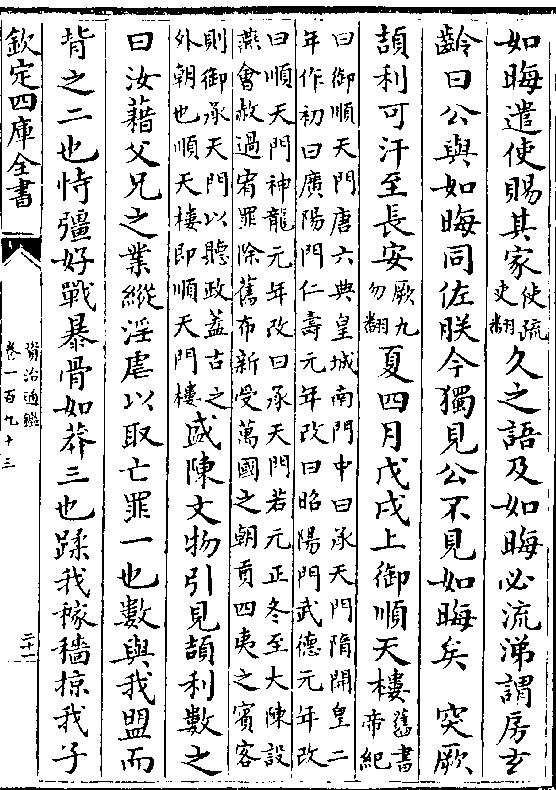 如晦遣使賜其家使疏吏翻久之語及如晦必流涕謂房玄
齡曰公與如晦同佐朕今獨見公不見如晦矣　突厥
頡利可汗至長安厥九勿翻夏四月戊戌上御順天樓舊書帝紀
曰御順天門唐六典皇城南門中曰承天門隋開皇二
年作初曰廣陽門仁壽元年改曰昭陽門武德元年改
曰順天門神龍元年改曰承天門若元正冬至大陳設
燕會赦過宥罪除舊布新受萬國之朝貢四夷之賓客
則御承天門以聽政蓋古之外朝也順天樓即順天門樓盛陳文物引見頡利數之
曰汝藉父兄之業縱淫虐以取亡罪一也數與我盟而
背之二也恃彊好戰暴骨如莽三也蹂我稼穡掠我子
欽定四庫全書
資治通鑑
卷一百九十三